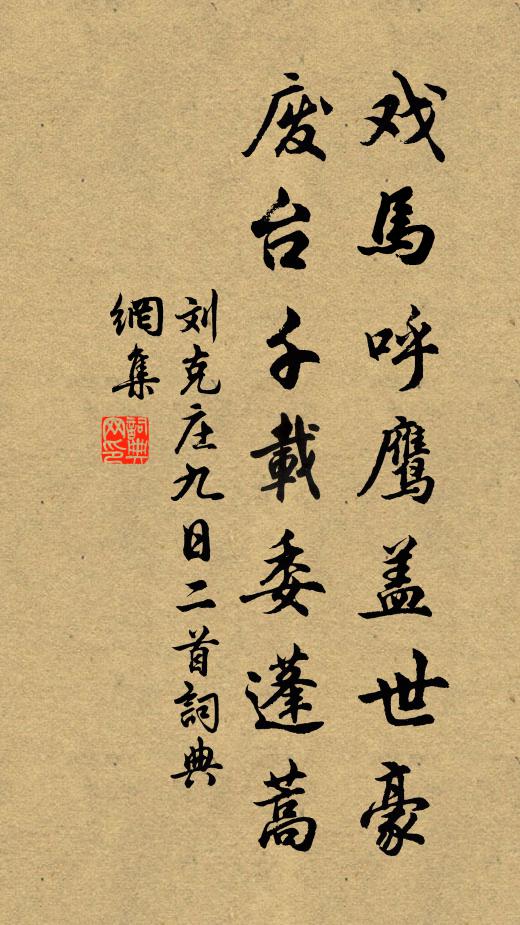 戏馬呼鹰盖世豪
废台千載委蓬蒿
刘克庄九日二首詞典
網集
詞典网印